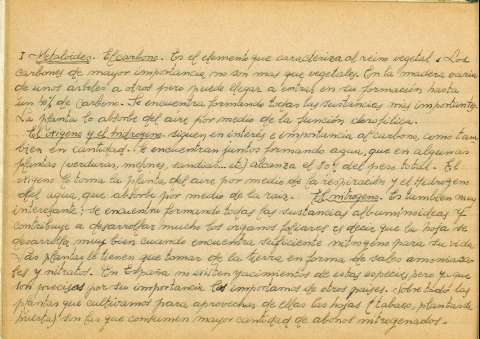 I Metaloides. El carbono. Es el elemento que caracteriza al reino vegetal. Los
carbones de mayor importancia, no son mas que vegetales. En la madera varia
de unos arboles a otros pero puede llegar a entrar en su formación hasta
un % de carbono. Se encuentra formando todas las sustancias mas importantes.
La planta lo absorbe del aire por medio de la función clorofilica.
El oxigeno y el hidrogeno. siguen en interés e importancia al carbono, como tam-
bien en cantidad. Se encuentran juntos formando agua, que en algunas
plantas (verduras, melones, sandias... etc) alcanza el 80% del peso total. El
oxigeno le toma la planta del aire por medio de la respiración y el hidrogeno
del agua, que absorbe por medio de la raiz. El nitrogeno. Es tambien muy
interesante: se encuentra formando todas las sustancias albuminoideas y
contribuye a desarrollar mucho los organos foliares es decir que la hoja se
desarrolla muy bien cuando encuentra suficiente nitrogeno para su vida.
Las plantas le tienen que tomar de la tierra en forma de sales amoniaca-
les y nitratos. En España no existen yacimientos de estas especies pero ya que
son precisos por su importancia los importamos de otros paises. Sobre todo las
plantas que cultivamos para aprovechar de ellas las hojas (tabaco, plantas de
huerta) son las que consumen mayor cantidad de abonos nitrogenados.